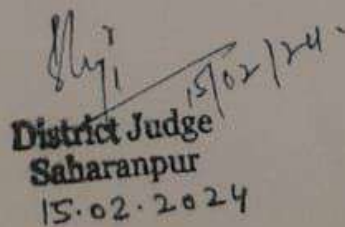 15/02/24
District Judge
Saharanpur
15.02.2024